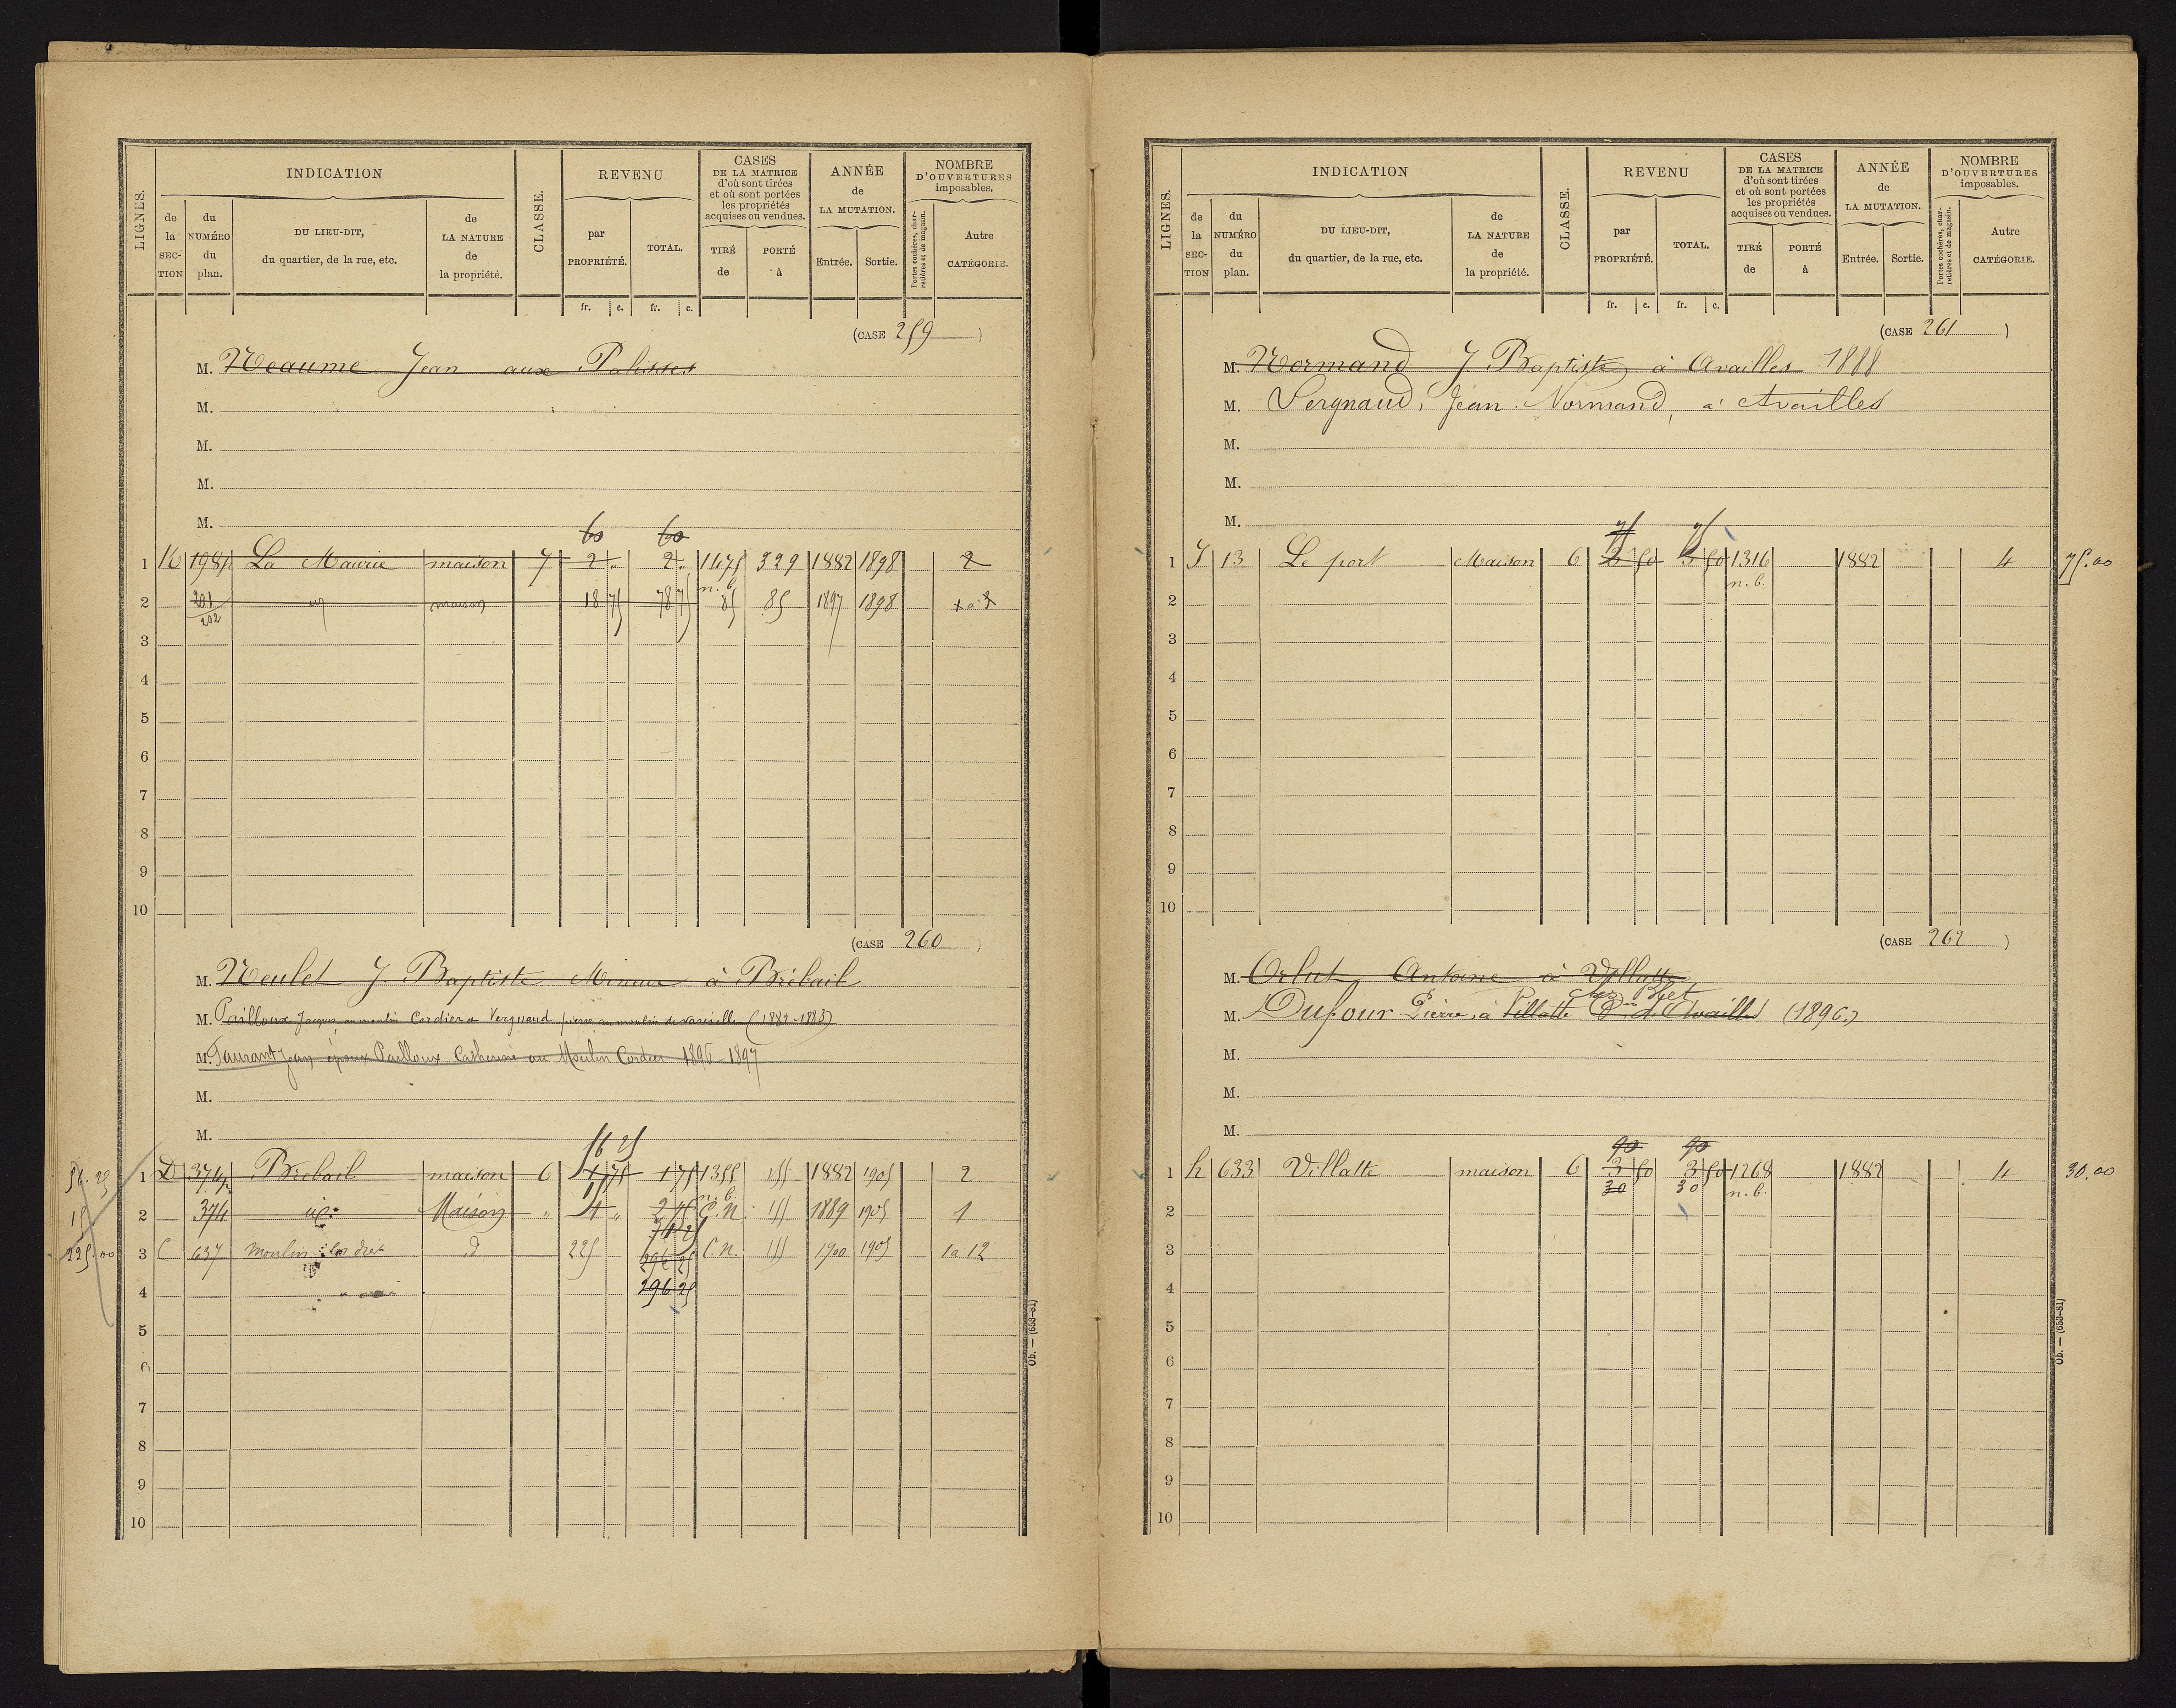 LIGNES.
INDICATION
de la SECTION
du NUMÉRO du plan.
DU LIEU-DIT, du quartier, de la rue, etc.
de LA NATURE de la propriété.
CLASSE.
REVENU
par PROPRIÉTÉ.
TOTAL.
fr. c. fr. c.
CASES DE LA MATRICE d'où sont tirées et où sont portées les propriétés acquises ou vendues.
TIRÉ de
PORTÉ à
ANNÉE de LA MUTATION.
Entrée. Sortie.
NOMBRE D'OUVERTURES imposables.
Portes cochères, charretières et de magasin.
Autre CATÉGORIE.
(CASE 259)
M. Neaume Jean aux Palisses
M.
M.
M.
M.
60 60
1 K 198p La Maurie maison 7 2 " 2 " 1475 329 1882 1898 2
n. b.
2 201/202 id maison 18 75 78 75 85 85 1897 1898
3
4
5
6
7
8
9
10
(CASE 260)
M. Neulet J. Baptiste Mineur à Brébail
M. Pailloux Jacques au moulin Cordier et Vergnaud pierre au moulin de (1882-1883)
M. Taurant Jean époux Pailloux Catherine au Moulin Cordier 1896-1897
M.
M.
56 25
56.25 1 D 374p Brébail maison 6 1 75 1 75 1355 155 1882 1905 2
n. b.
15
15 2 374 id: Maison " 4 " 2 75 C.N. 155 1889 1905 1
71 25
225.00 3 C 637 Moulin Cordier d 225 296 25 C.N. 155 1900 1905 1 à 12
4 296 25
5
6
7
8
9
10
Ob. — (653-81)
LIGNES.
INDICATION
de la SECTION
du NUMÉRO du plan.
DU LIEU-DIT, du quartier, de la rue, etc.
de LA NATURE de la propriété.
CLASSE.
REVENU
par PROPRIÉTÉ.
TOTAL.
fr. c. fr. c.
CASES DE LA MATRICE d'où sont tirées et où sont portées les propriétés acquises ou vendues.
TIRÉ de
PORTÉ à
ANNÉE de LA MUTATION.
Entrée. Sortie.
NOMBRE D'OUVERTURES imposables.
Portes cochères, charretières et de magasin.
Autre CATÉGORIE.
(CASE 261)
M. Normand J. Baptiste à Availles 1888
M. Sergnaud, Jean Normand, à Availles
M.
M.
M.
75 75
1 J 13 Le port Maison 6 3 50 3 50 1316 1882 4 75.00
n. b.
2
3
4
5
6
7
8
9
10
(CASE 262)
M. Orlut Antoine à Villatte
chez Bret
M. Dufour Pierre, à Villatte Cne d'Availles (1896)
M.
M.
M.
90 90
1 h 633 Villatte maison 6 3 50 3 50 1268 1882 4 30.00
30 30 n. b.
2
3
4
5
6
7
8
9
10
Ob. — (653-81)